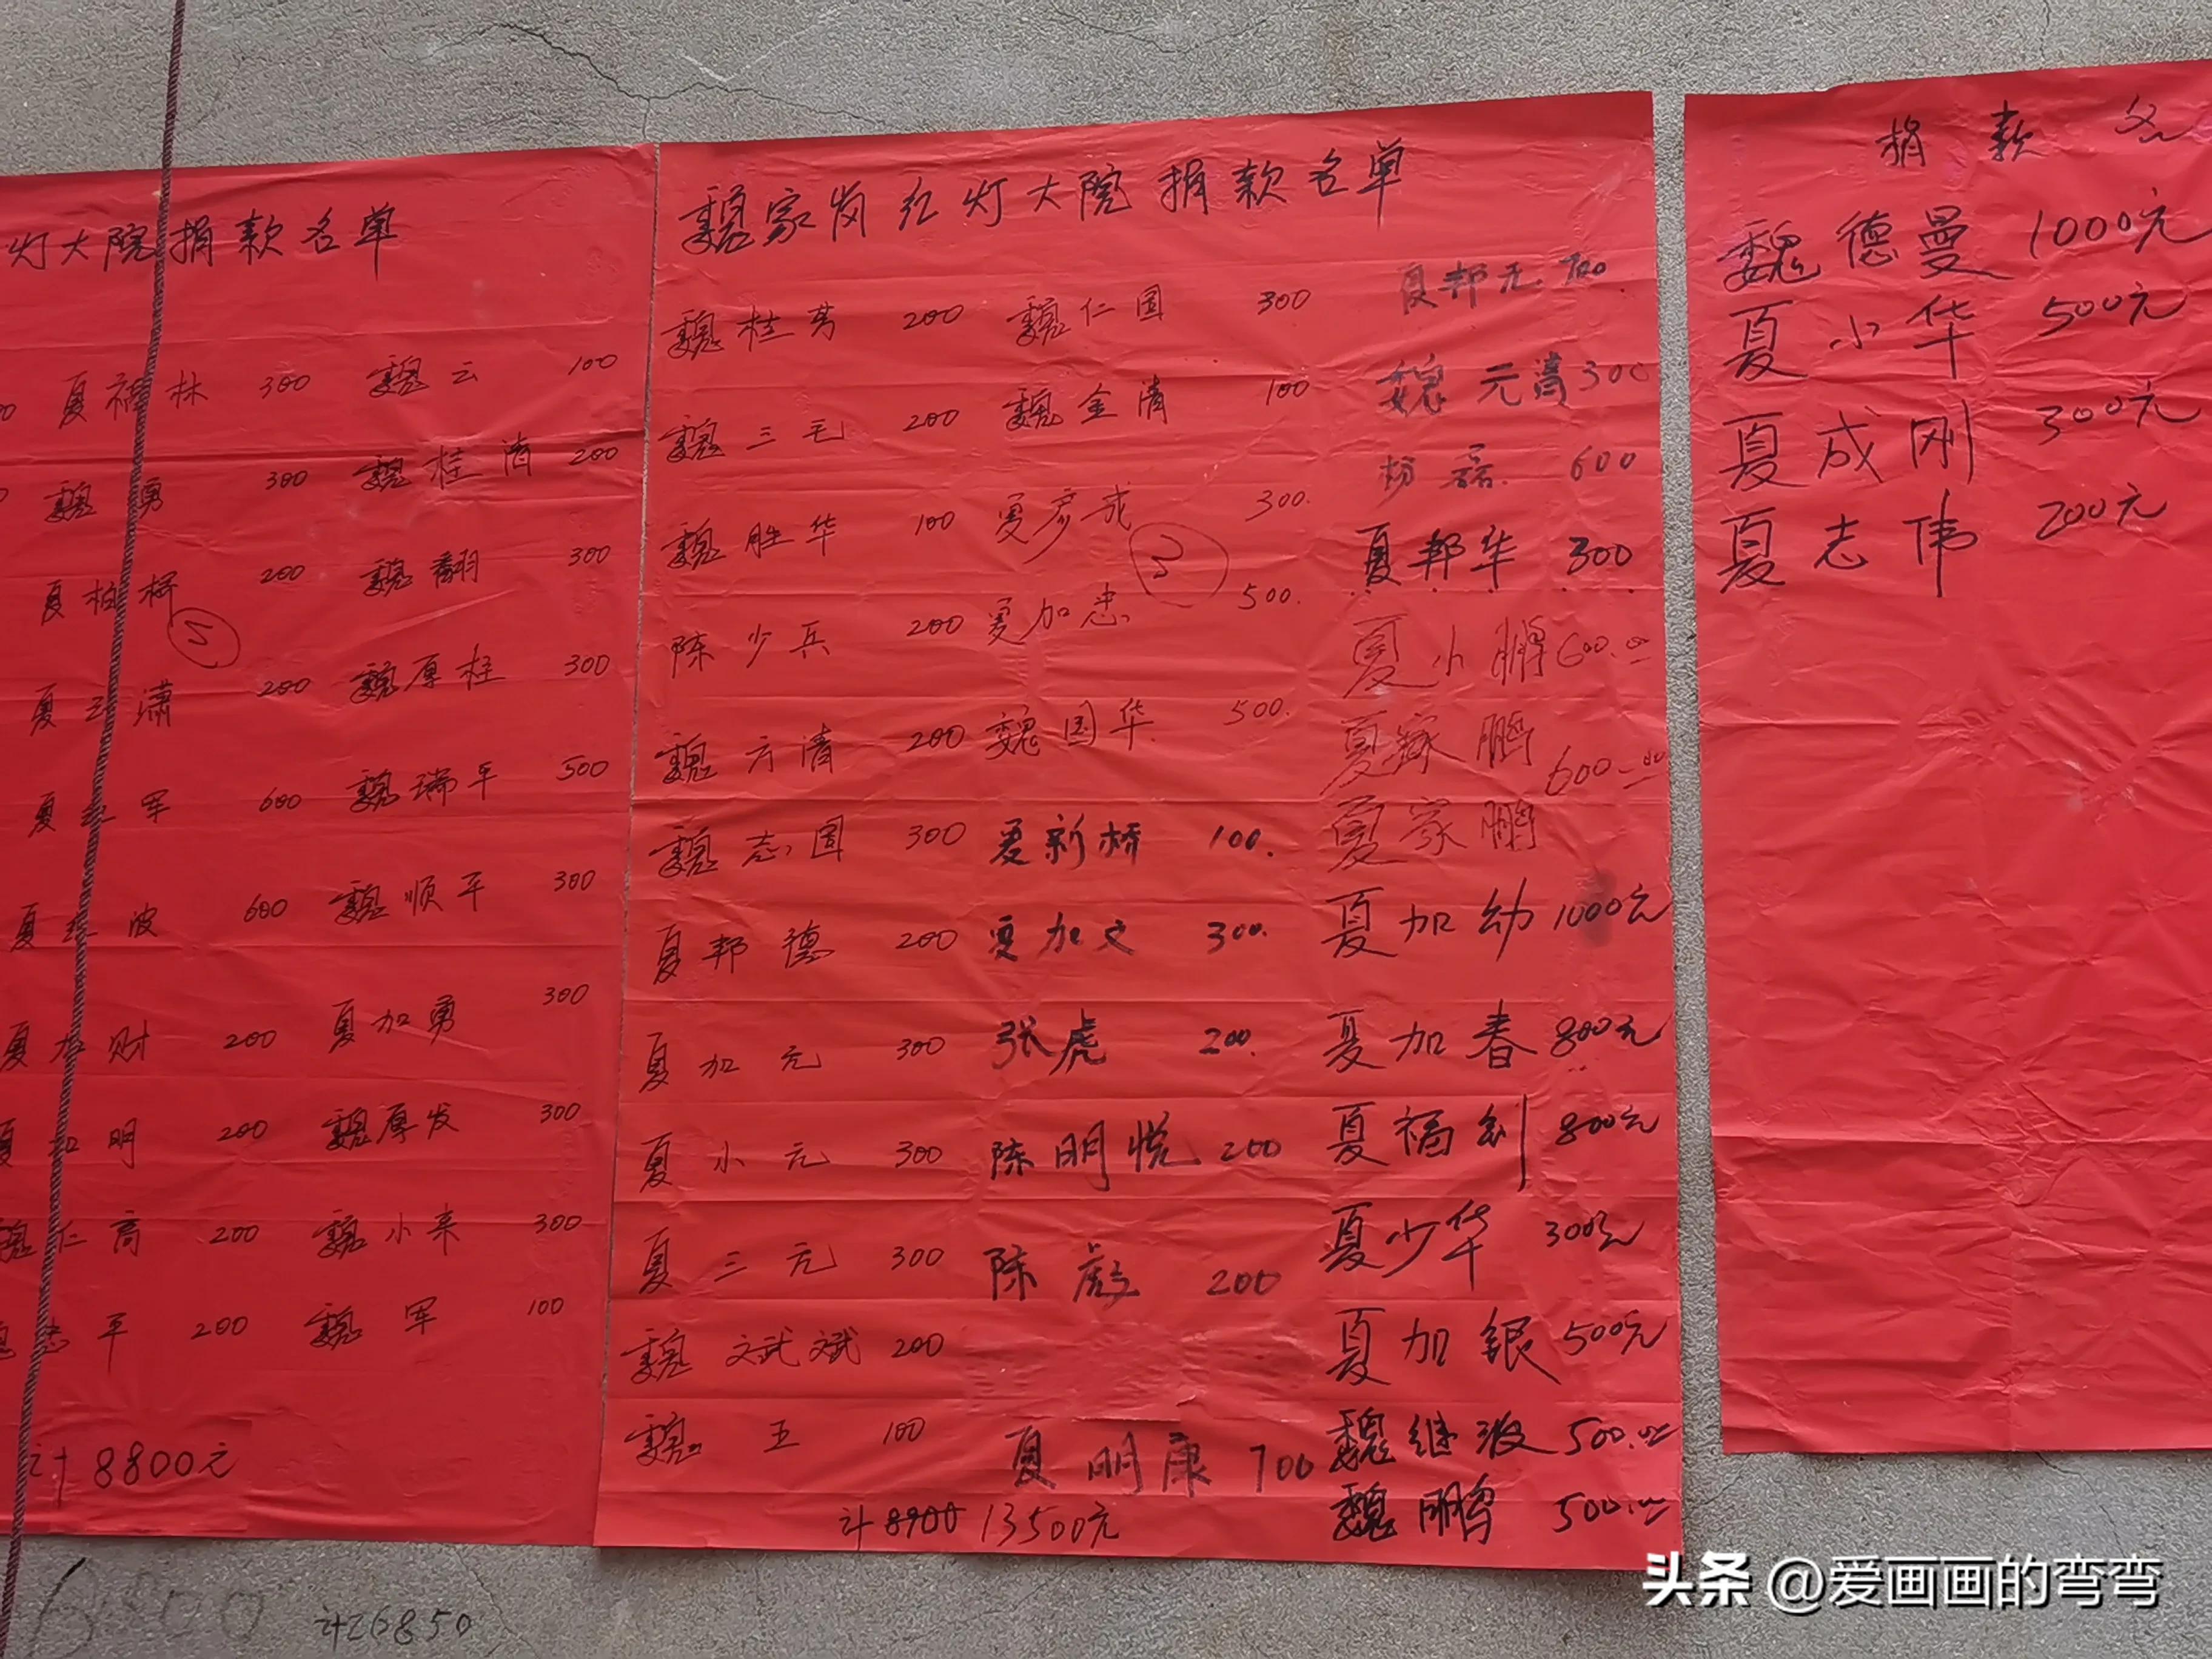 灯大院捐款名单
夏福林 300 魏云 100
魏勇 300 魏桂清 200
夏柏 200 魏翻 300
夏 潇 200 魏厚柱 300
夏 军 600 魏瑞平 500
夏 波 600 魏顺平 300
夏加财 200 夏加勇 300
夏加明 200 魏厚发 300
魏仁高 200 魏小来 300
志平 200 魏军 100
计8800元
魏家岗红灯大院捐款名单
魏桂芳 200 魏仁国 300 夏邦元 700
魏三毛 200 魏金清 100 魏元清 300
魏胜华 100 夏彦成 300. 杨磊 600
陈少兵 200 夏加忠 500. 夏邦华 300
魏方清 200 魏国华 500. 夏小鹏 600.00
魏志国 300 夏新桥 100. 夏家鹏 600.00
夏家鹏
夏邦德 200 夏加文 300. 夏加幼 1000元
夏加元 300 张虎 200. 夏加春 800元
夏小元 300 陈明悦 200 夏福创 800元
夏三元 300 陈彪 200 夏少华 300元
魏斌斌 200 夏加银 500元
魏五 100 夏明康 700 魏继波 500.00
魏鹏 500.00
计8900 13500元
捐款名
魏德曼 1000元
夏小华 500元
夏成刚 300元
夏志伟 200元
计26850
头条 @爱画画的弯弯